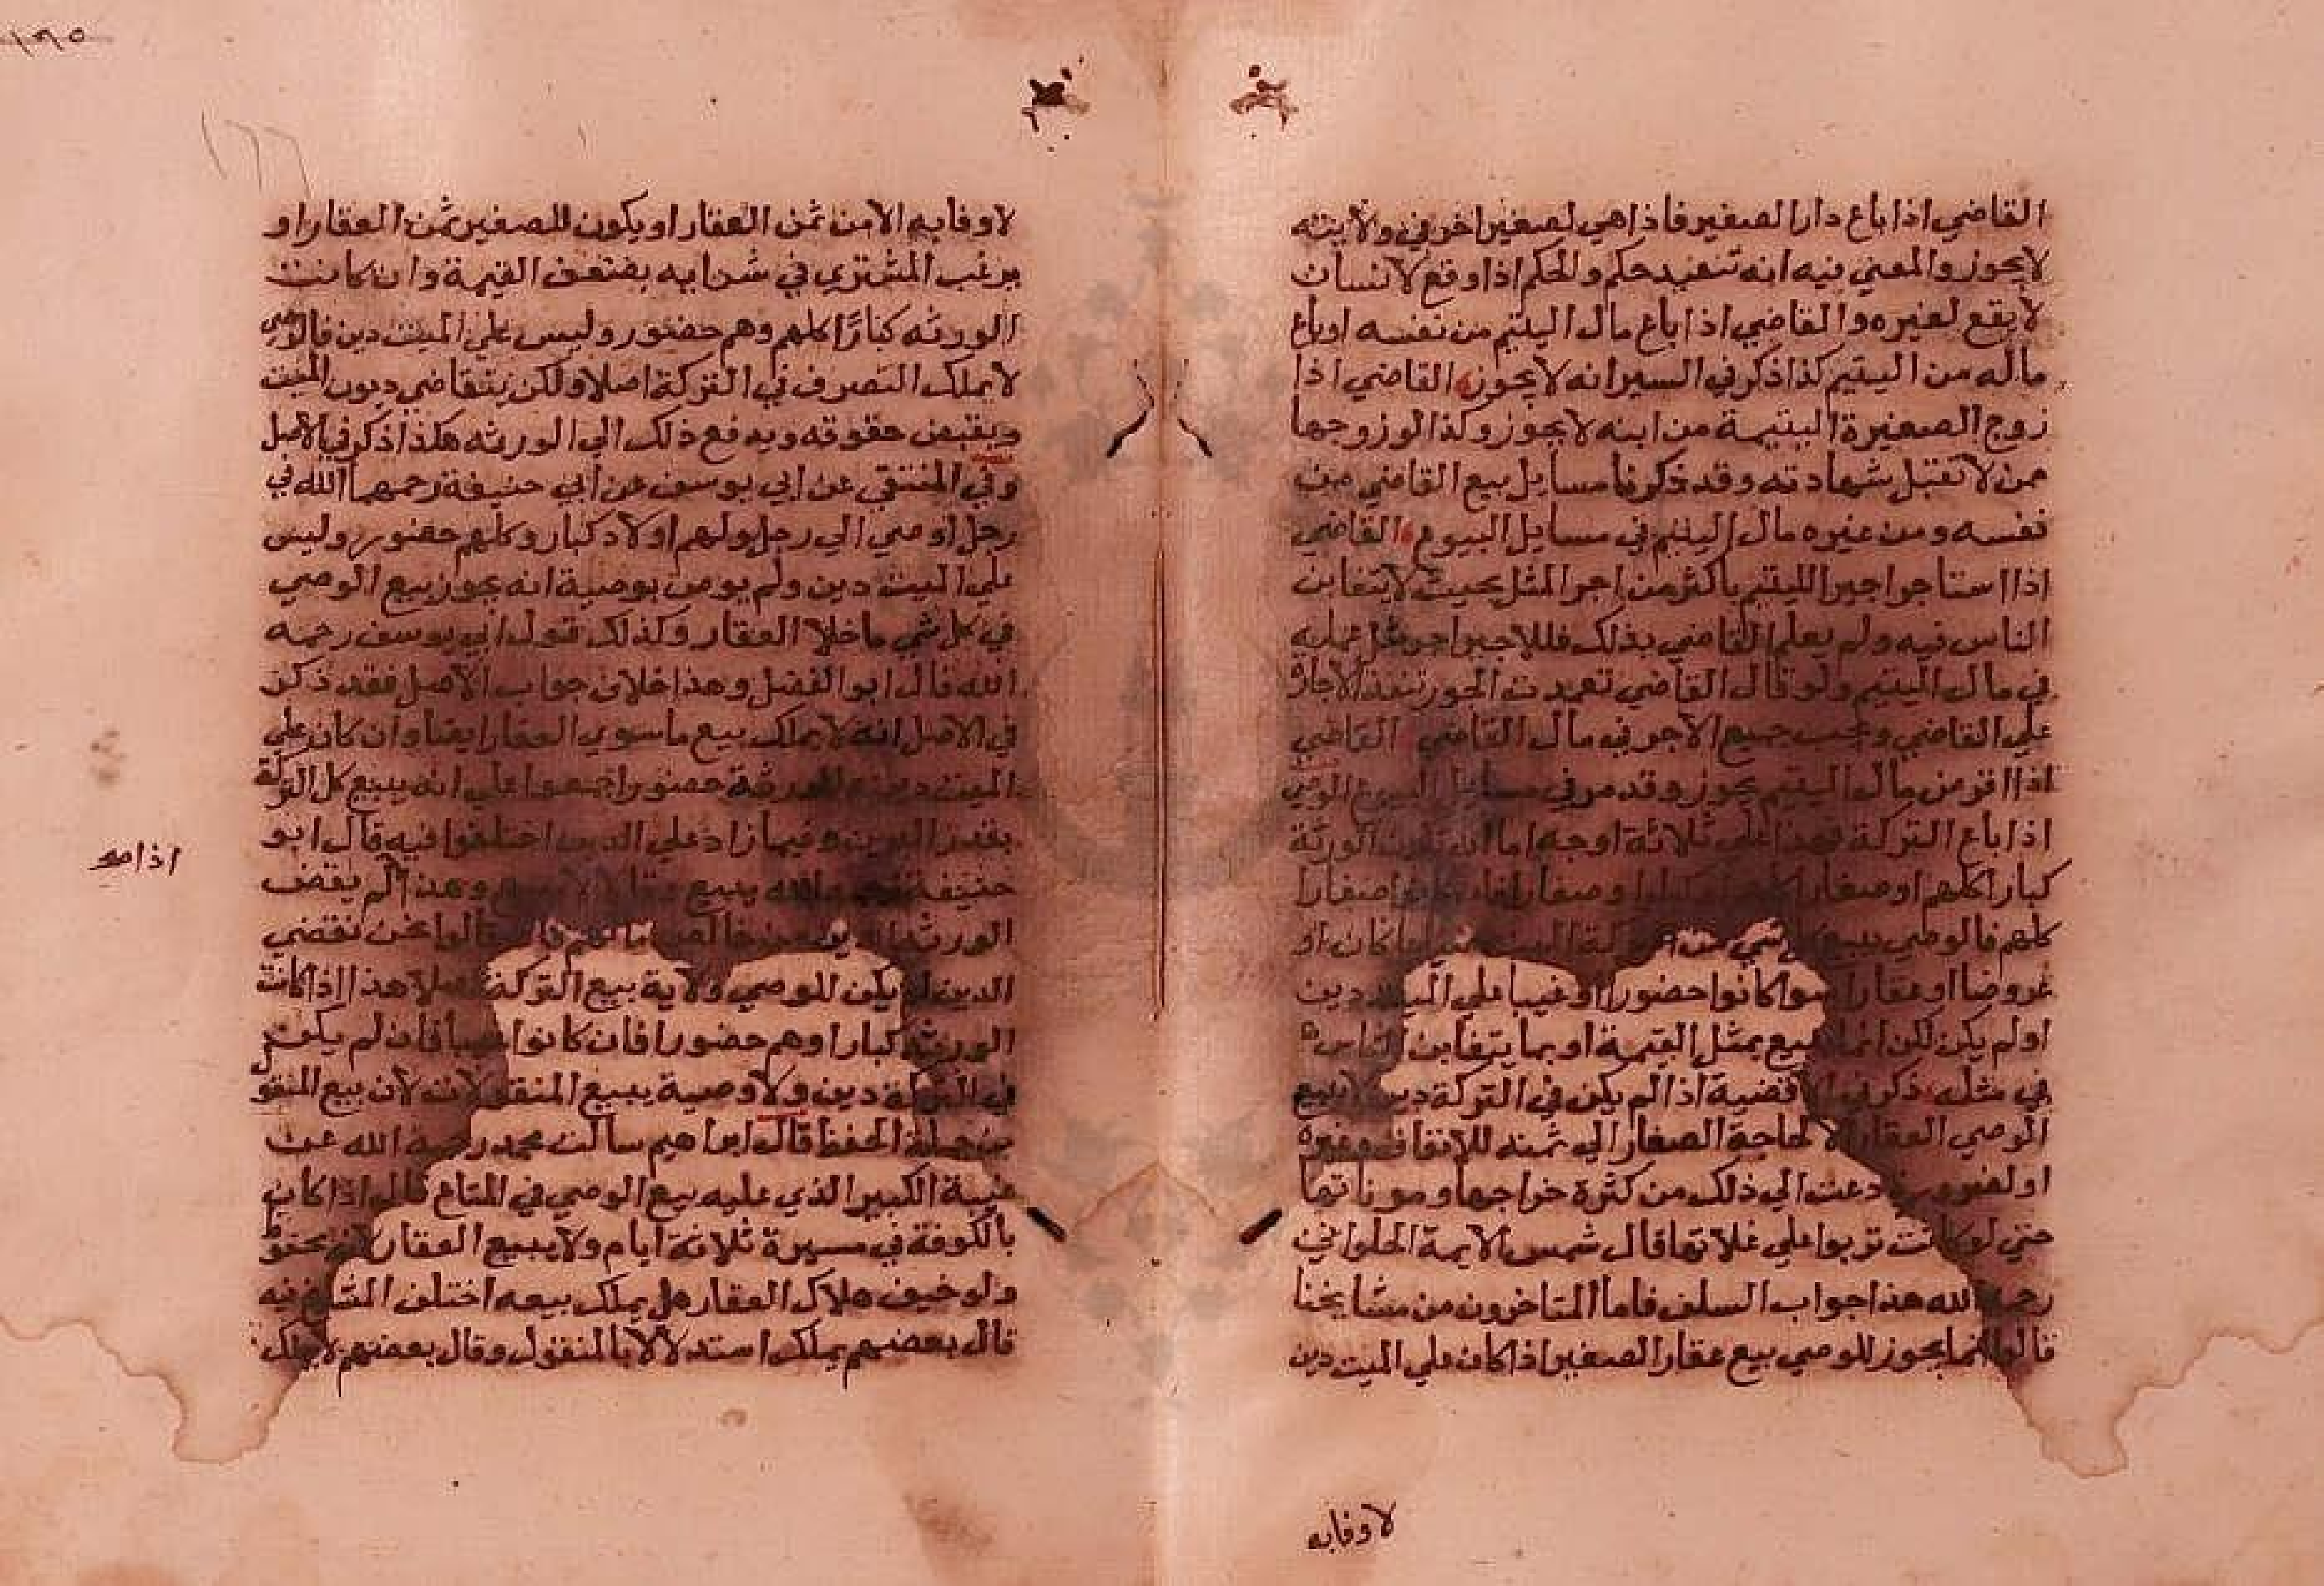 القاضي اذا باع دار الصغير فاذا هي لصغير اخر في ولايته
لا يجوز والمعني فيه انه تنفيد حكم والحكم اذا وقع لانسان
لا يقع لغيره والقاضي اذا باع مال اليتيم من نفسه او باع
ماله من اليتيم كذا ذكر في السير انه لا يجوز القاضي اذا
زوج الصغيرة اليتيمة من ابنه لا يجوز وكذا لو زوجها
ممن لا تقبل شهادته وقد ذكرنا مسايل بيع القاضي من
نفسه ومن غيره مال اليتيم في مسايل البيوع القاضي
اذا استاجر اجير اليتيم باكثر من اجر المثل بحيث لا يتغابن
الناس فيه ولم يعلم القاضي بذلك فللاجير اجر مثل عمله
في مال اليتيم ولو قال القاضي تعمدت الجور تنفذ الاجارة
علي القاضي ويجب جميع الاجر في مال القاضي القاضي
اذا اقر من مال اليتيم يجوز وقد مر في مسايل البيوع الوصي
اذا باع التركة فهذا علي ثلاثة اوجه اما ان تكون الورثة
كبارا كلهم او صغارا كلهم او كبارا وصغارا فان كانوا صغارا
كلهم فالوصي يبيع كل شي من تركة الميت كان او
عروضا او عقارا سوا كانوا حضورا او غيبا علي الميت دين
اولم يكن لكن انما يبيع بمثل القيمة او بما يتغابن الناس
في مثله ذكر في الاقضية اذا لم يكن في التركة دين لا يبيع
الوصي العقار الا لحاجة الصغار الي ثمنه للانفاق وغيره
او لضرورة دعت الي ذلك من كثرة خراجها ومونا تها
حتي لو كانت تربوا علي غلاتها قال شمس الايمة الحلواني
رحمه الله هذا جواب السلف فاما المتاخرون من مشايخنا
قالوا انما يجوز للوصي بيع عقار الصغير اذا كان علي الميت دين
لا وفابه
١٩٥
١٦٦
لا وفابه الا من ثمن العقار او يكون للصغير ثمن العقار او
يرغب المشتري في شرايه بضعف القيمة وان كانت
الورثه كبارًا كلهم وهم حضور وليس علي الميت دين فالوصي
لا يملك التصرف في التركة اصلا ولكن يتقاضي ديون الميت
ويقبض حقوقه ويدفع ذلك الي الورثه هكذا ذكر في الاصل
وفي المنتقي عن ابي يوسف عن ابي حنيفة رحمهما الله في
رجل اوصي الي رجل ولهم اولاد كبار وكلهم حضور وليس
علي الميت دين ولم يوص بوصية انه يجوز بيع الوصي
في كل شي ما خلا العقار وكذلك قول ابي يوسف رحمه
الله قال ابو الفضل وهذا خلاف جواب الاصل فقد ذكر
في الاصل انه لا يملك بيع ما سوي العقار ايضا وان كان علي
الميت دين والورثة حضور اجمعوا علي انه يبيع كل التركة
بقدر الدين وفيما زاد علي الدين اختلفوا فيه قال ابو
حنيفة رحمه الله يبيع وقالا لا يبيع وهذا الم يقض
الورثة الدين من خالص مالهم قالوا نحن نقضي
الدين لم يكن للوصي ولاية بيع التركة اصلا هذا اذا كانت
الورثة كبارا وهم حضور فان كانوا غيبا فان لم يكن
في التركة دين ولا وصية يبيع المنقولات لان بيع المنقو
من جملة الحفظ قال ابراهيم سالت محمد رحمة الله عن
غيبة الكبير الذي عليه بيع الوصي في المتاع قال اذا كان
بالكوفة في مسيرة ثلاثة ايام ولا يبيع العقار
ولو خيف هلاك العقار هل يملك بيعه اختلف المشايخ فيه
قال بعضهم يملك استدلالا بالمنقول وقال بعضهم لا يملك